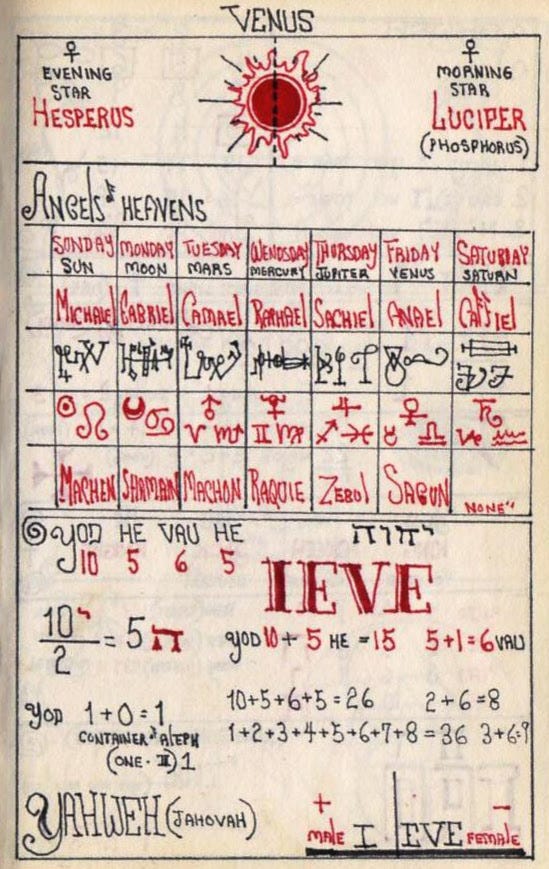 VENUS
♀
EVENING
STAR
HESPERUS
♀
MORNING
STAR
LUCIPER
(PHOSPHORUS)
ANGELS & HEAVENS
SONDAY MONDAY TUESDAY WENDSDAY THURSDAY FRIDAY SATURDAY
SUN MOON MARS MERCURY JUPITER VENUS SATURN
MICHALE GABRIEL CAMAEL RAPHAEL SACHIEL ANAEL CASSIEL
☉ ♌ ☽ ♋ ♂ ♈ ♏ ☿ ♊ ♍ ♃ ♐ ♓ ♀ ♉ ♎ ♄ ♑ ♒
MACHEN SHAMAIN MACHON RAQUIE ZEBUL SAGUN NONE"
YOD HE VAU HE יהוה
10 5 6 5
IEVE
10 י / 2 = 5 ה
YOD 10 + 5 HE = 15 5+1=6 VAU
10+5+6+5=26 2+6=8
YOD 1+0=1
1+2+3+4+5+6+7+8=36 3+6=9
CONTAINER & ALEPH
(ONE·II) 1
YAHWEH (JAHOVAH)
+ −
MALE I EVE FEMALE